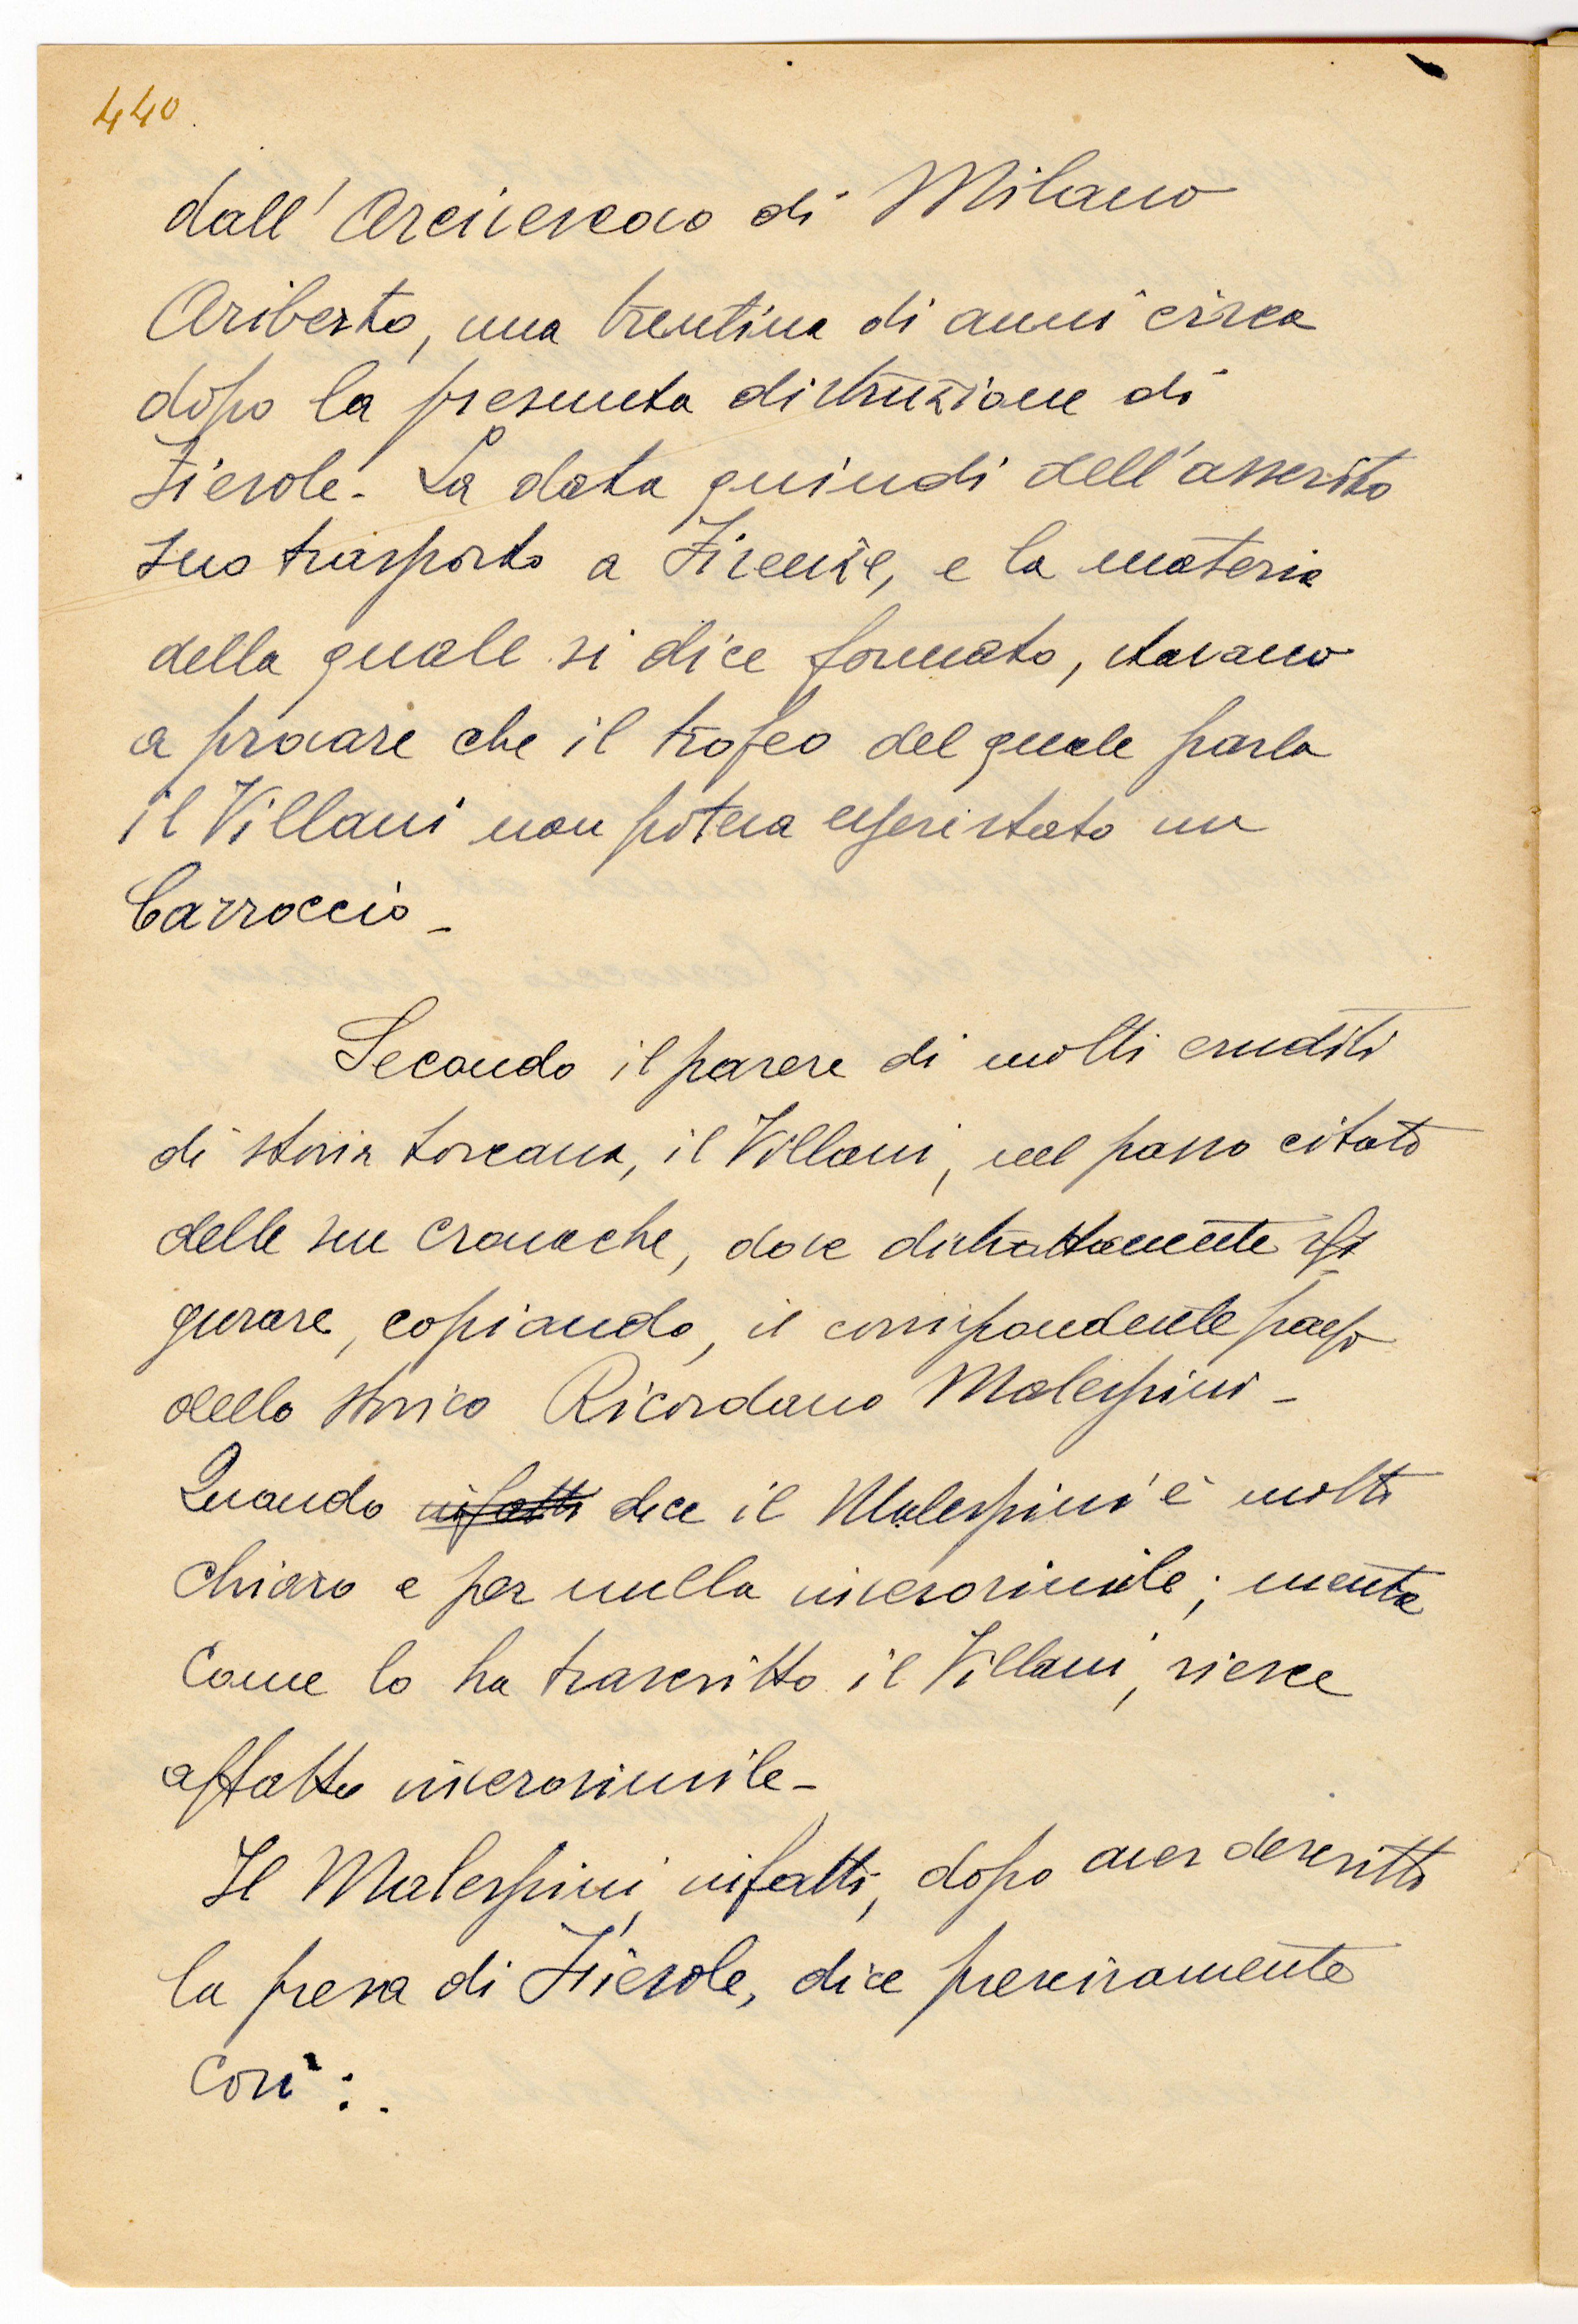 440.
dall'Arcivescovo di Milano
Ariberto, una trentina di anni circa
dopo la presunta distruzione di
Fiesole. La data quindi dell'asserito
suo trasporto a Firenze, e la materia
della quale si dice formato, stavano
a provare che il trofeo del quale parla
il Villani non poteva esser stato un
Carroccio -
Secondo il parere di molti eruditi
di storia toscana, il Villani, nel passo citato
delle sue cronache, dove distrattamente sfi
gurare, copiando, il corrispondente passo
dello storico Ricordano Malespini -
Quando infatti dice il Malespini è molto
chiaro e per nulla inverosimile; mentre
come lo ha trascritto il Villani, riesce
affatto inverosimile -
Il Malespini, infatti, dopo aver descritto
la presa di Fiesole, dice precisamente
così: .